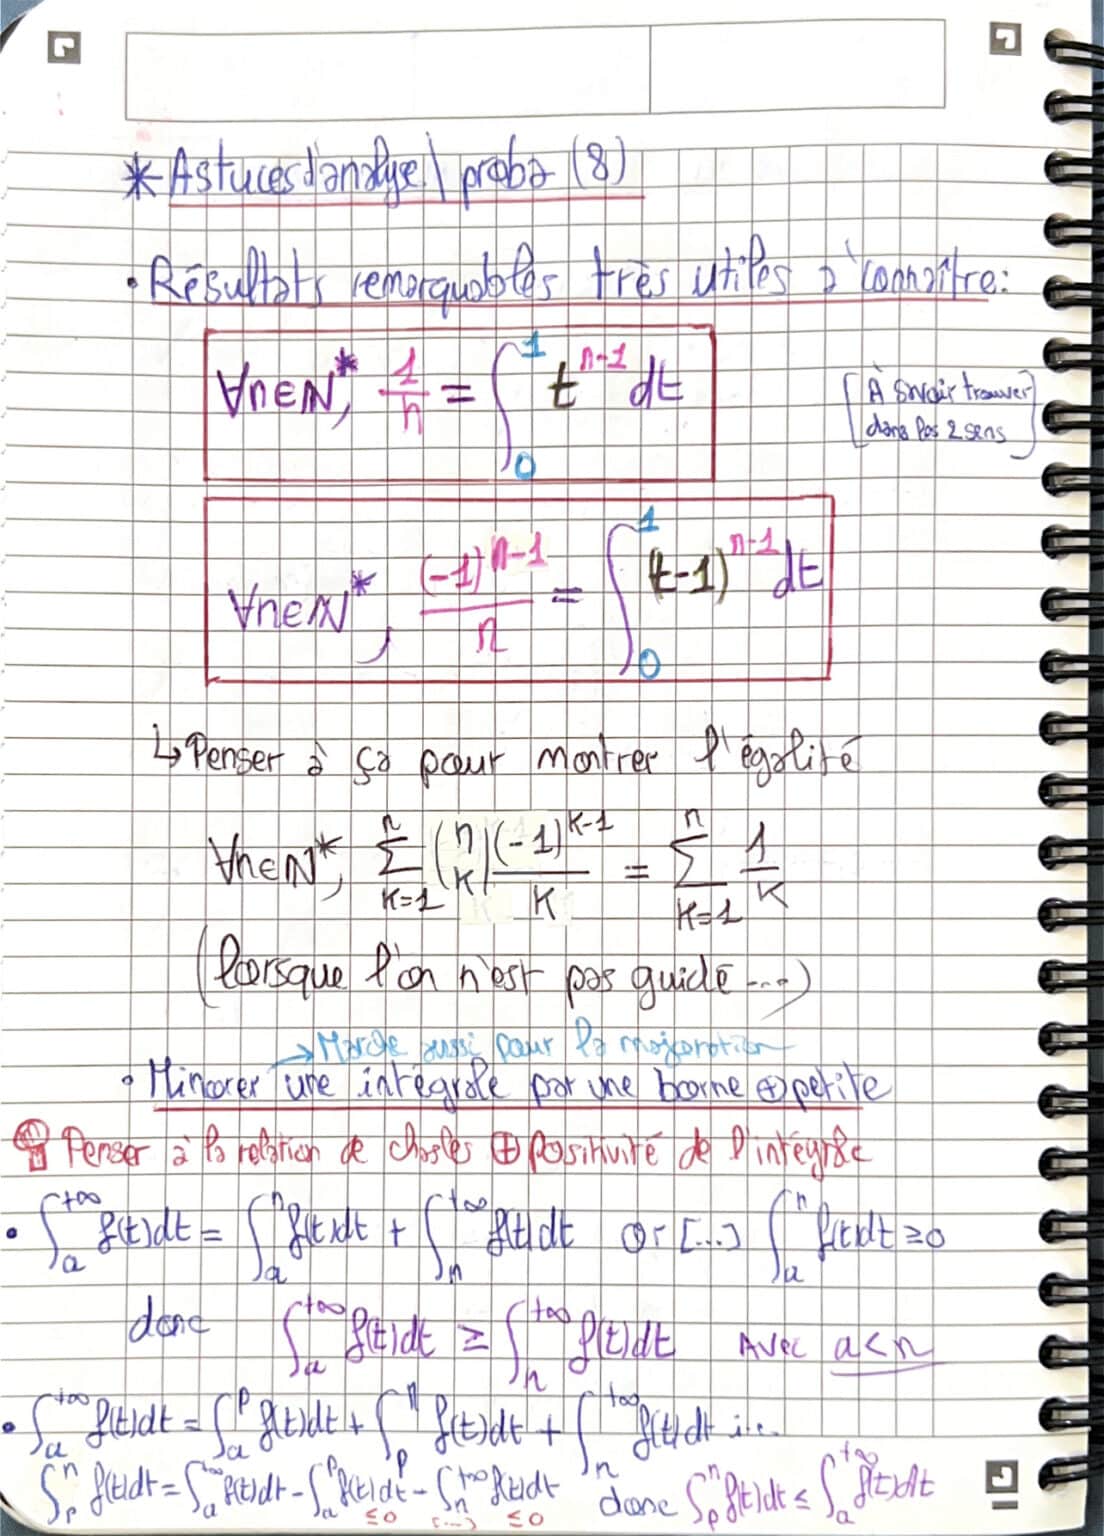 * Astuces d'analyse \ proba (8)
• Résultats remarquables très utiles à connaître:
∀n∈ℕ*, 1/n = ∫_0^1 t^{n-1} dt
[À savoir trouver
dans les 2 sens]
∀n∈ℕ*, (-1)^{n-1}/n = ∫_0^1 (t-1)^{n-1} dt
↳ Penser à ça pour montrer l'égalité
∀n∈ℕ*, Σ_{k=1}^n (n k) (-1)^{k-1}/k = Σ_{k=1}^n 1/k
(lorsque l'on n'est pas guidé ....)
→ Marche aussi pour la majoration
• Minorer une intégrale par une borne ⊕ petite
Penser à la relation de chasles ⊕ positivité de l'intégrale
• ∫_a^{+∞} f(t)dt = ∫_a^n f(t)dt + ∫_n^{+∞} f(t)dt or [...] ∫_a^n f(t)dt ≥0
donc ∫_a^{+∞} f(t)dt ≥ ∫_n^{+∞} f(t)dt Avec a<n
• ∫_a^{+∞} f(t)dt = ∫_a^p f(t)dt + ∫_p^n f(t)dt + ∫_n^{+∞} f(t)dt i...
∫_p^n f(t)dt = ∫_a^{+∞} f(t)dt - ∫_a^p f(t)dt - ∫_n^{+∞} f(t)dt donc ∫_p^n f(t)dt ≤ ∫_a^{+∞} f(t)dt
≤0 (...) ≤0